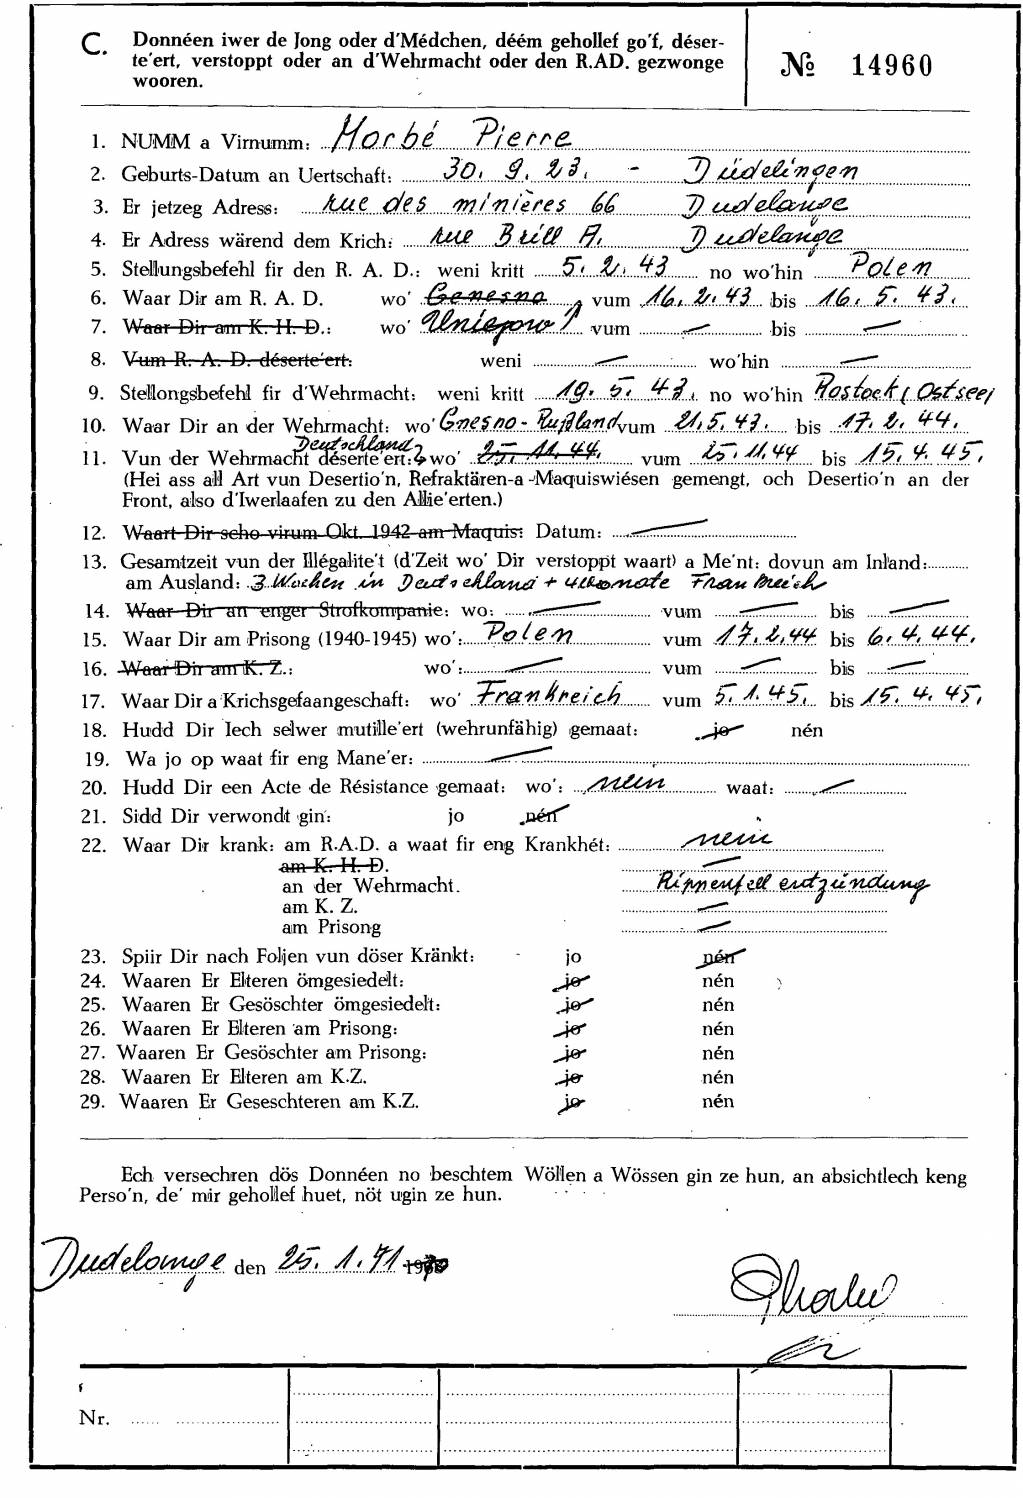 C. Donnéen iwer de Jong oder d'Médchen, déém gehollef go'f, déser-
te'ert, verstoppt oder an d'Wehrmacht oder den R.AD. gezwonge
wooren.
№ 14960
1. NUMM a Virnumm: Morbé Pierre
2. Geburts-Datum an Uertschaft: 30. 9. 23. - Düdelingen
3. Er jetzeg Adress: rue des minières 66 Dudelange
4. Er Adress wärend dem Krich: rue Brill A. Dudelange
5. Stellungsbefehl fir den R. A. D.: weni kritt 5. 2. 43 no wo'hin Polen
6. Waar Dir am R. A. D. wo' Genesno vum 16. 2. 43 bis 16. 5. 43.
7. Waar Dir am K. H. D.: wo' Uniegow vum — bis —
8. Vum R. A. D. déserte'ert: weni — wo'hin —
9. Stellongsbefehl fir d'Wehrmacht: weni kritt 19. 5. 43. no wo'hin Rostock (Ostsee)
10. Waar Dir an der Wehrmacht: wo' Gnesno - Rußland vum 21. 5. 43. bis 17. 2. 44.
Deutschland
11. Vun der Wehrmacht déserte'ert: wo' 25. 11. 44. vum 25. 11. 44 bis 15. 4. 45.
(Hei ass all Art vun Desertio'n, Refraktären-a -Maquiswiésen gemengt, och Desertio'n an der
Front, also d'Iwerlaafen zu den Allie'erten.)
12. Waart Dir scho virum Okt. 1942 am Maquis: Datum: —
13. Gesamtzeit vun der Illégalite't (d'Zeit wo' Dir verstoppt waart) a Me'nt: dovun am Inland:
am Ausland: 3 Wochen in Deutschland + 4 Monate Frankreich
14. Waar Dir an enger Strofkompanie: wo: — vum — bis —
15. Waar Dir am Prisong (1940-1945) wo': Polen vum 17. 2. 44 bis 6. 4. 44.
16. Waar Dir am K. Z.: wo': — vum — bis —
17. Waar Dir a Krichsgefaangeschaft: wo' Frankreich vum 5. 1. 45. bis 15. 4. 45.
18. Hudd Dir Iech selwer mutille'ert (wehrunfähig) gemaat: jo nén
19. Wa jo op waat fir eng Mane'er: —
20. Hudd Dir een Acte de Résistance gemaat: wo': nein waat: —
21. Sidd Dir verwondt gin: jo nén
22. Waar Dir krank: am R.A.D. a waat fir eng Krankhét: nein
am K. H. D. —
an der Wehrmacht. Rippenfell entzündung
am K. Z. —
am Prisong —
23. Spiir Dir nach Foljen vun döser Kränkt: jo nén
24. Waaren Er Elteren ömgesiedelt: jo nén
25. Waaren Er Gesöschter ömgesiedelt: jo nén
26. Waaren Er Elteren am Prisong: jo nén
27. Waaren Er Gesöschter am Prisong: jo nén
28. Waaren Er Elteren am K.Z. jo nén
29. Waaren Er Geseschteren am K.Z. jo nén
Ech versechren dös Donnéen no beschtem Wöllen a Wössen gin ze hun, an absichtlech keng
Perso'n, de' mir gehollef huet, nöt ugin ze hun.
Dudelange den 25. 1. 71
Nr.